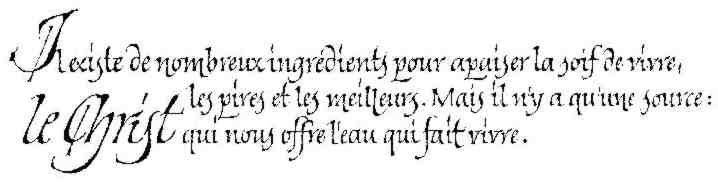 Il existe de nombreux ingrédients pour apaiser la soif de vivre,
les pires et les meilleurs. Mais il n'y a qu'une source :
le Christ qui nous offre l'eau qui fait vivre.